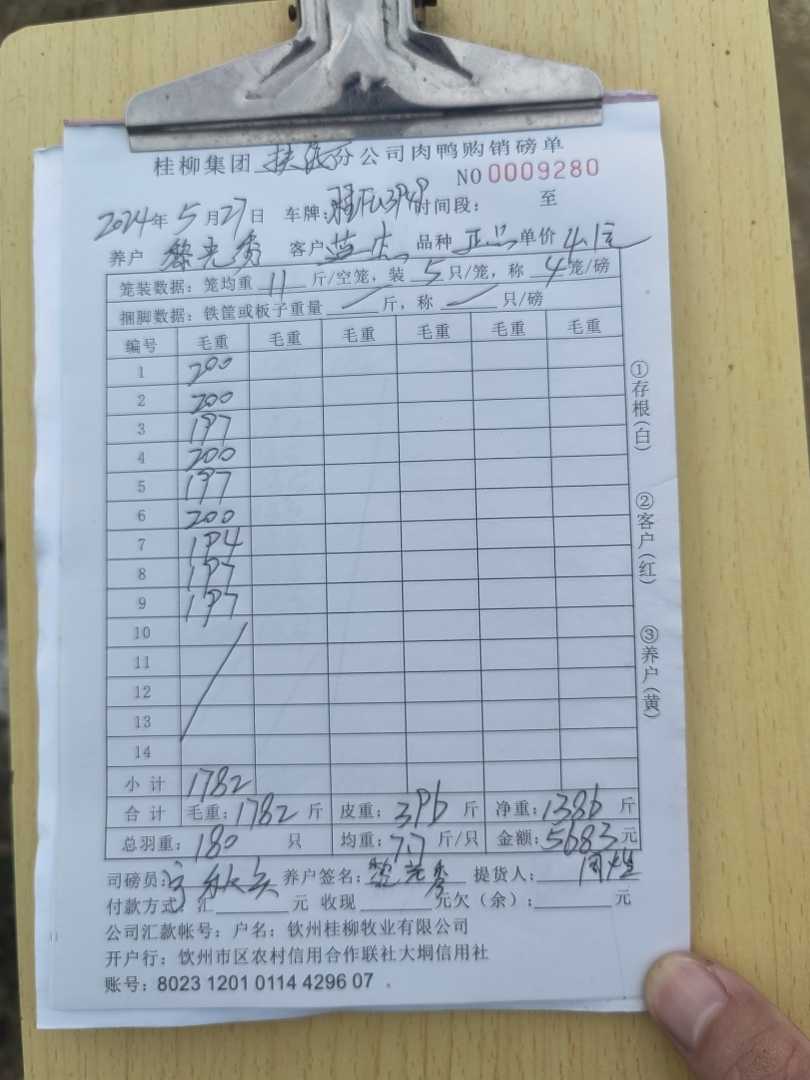 桂柳集团 扶绥分公司肉鸭购销磅单
NO 0009280
2024年5月27日 车牌: 时间段: 至
养户 黎光秀 客户 蓝 品种 正品 单价 4.1元
笼装数据: 笼均重 11 斤/空笼, 装 5 只/笼, 称 4 笼/磅
捆脚数据: 铁筐或板子重量 / 斤, 称 / 只/磅
编号 毛重 毛重 毛重 毛重 毛重 毛重
1 200
2 200
3 197
4 200
5 197
6 200
7 194
8 197
9 197
10
11
12
13
14
小计 1782
合计 毛重: 1782 斤 皮重: 396 斤 净重: 1386 斤
总羽重: 180 只 均重: 7.7 斤/只 金额: 5683 元
司磅员: 养户签名: 黎光秀 提货人:
付款方式: 汇 元 收现 元欠(余): 元
公司汇款帐号: 户名: 钦州桂柳牧业有限公司
开户行: 钦州市区农村信用合作联社大垌信用社
账号: 8023 1201 0114 4296 07
①存根(白)
②客户(红)
③养户(黄)